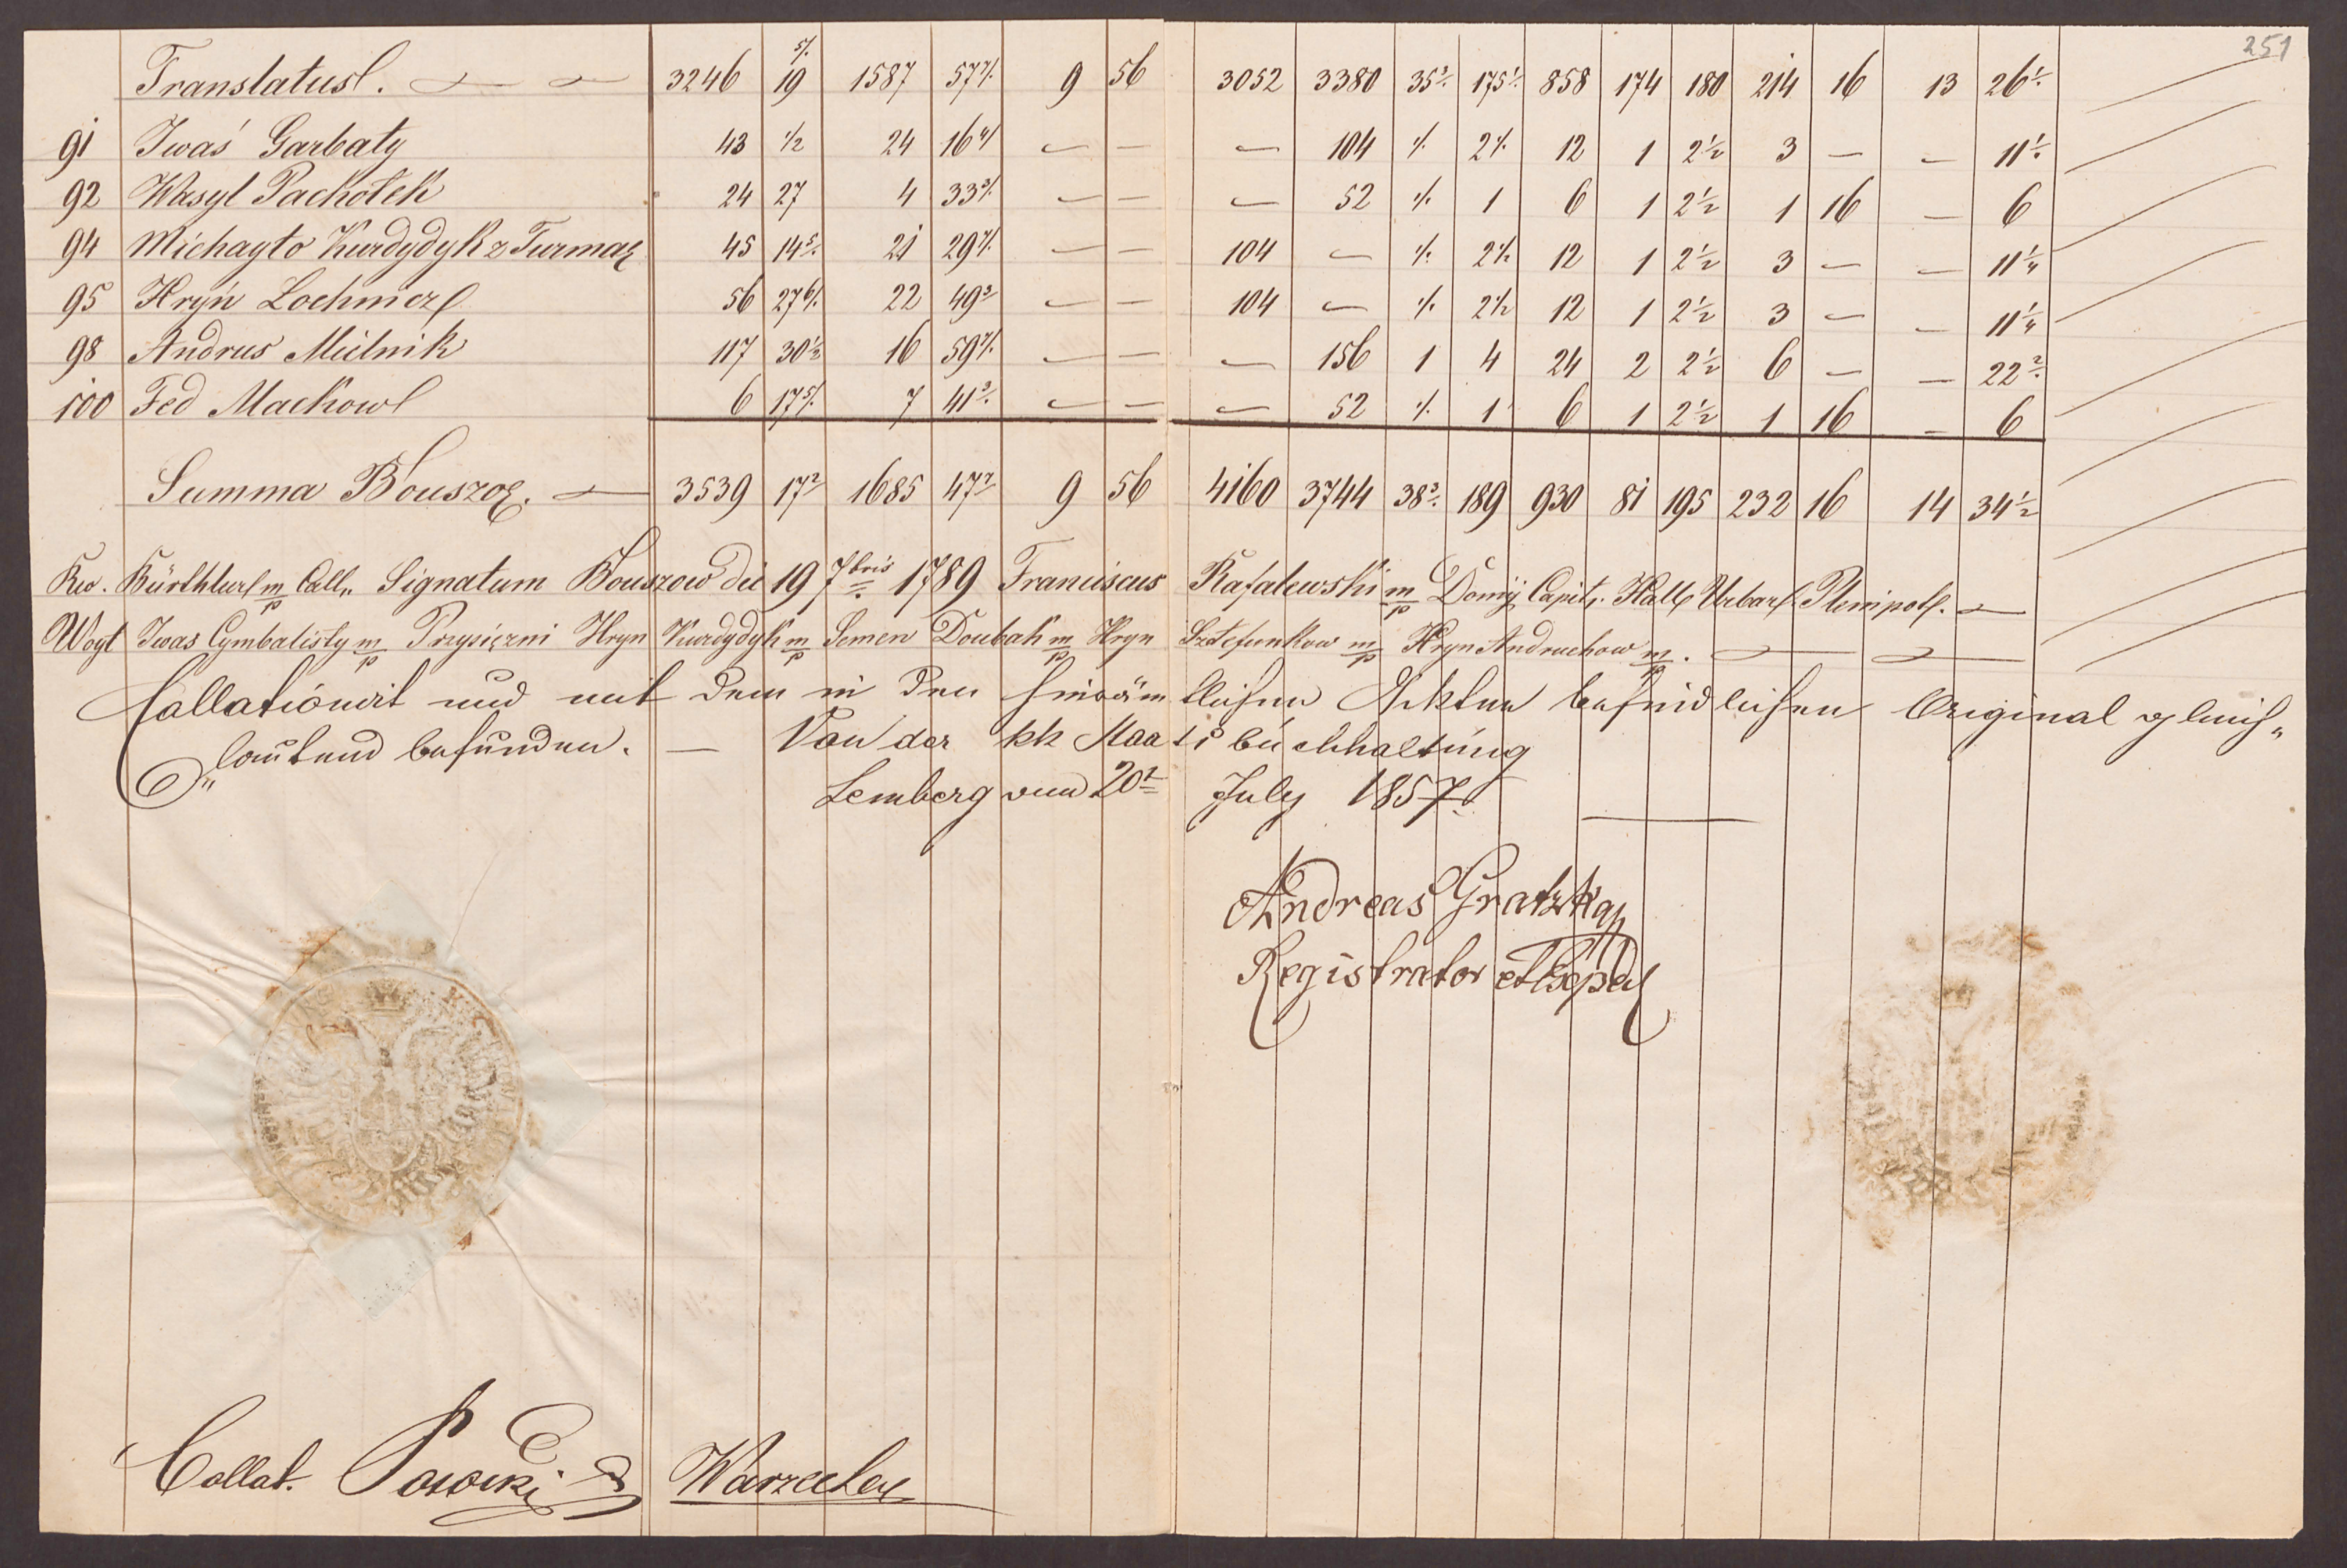 251
Translatus. 3246 19 5/. 1587 57 7/. 9 56 3052 3380 35 3/. 175 1/. 858 174 180 214 16 13 26 1/.
91 Iwaś Garbaty 43 1/2 24 16 4/ — — — 104 1/. 2 1/. 12 1 2 1/2 3 — — 11 1/.
92 Wasyl Pachołek 24 27 4 33 3/. — — — 52 1/. 1 6 1 2 1/2 1 16 — 6
94 Michayło Kurdydyk z Turmaz 45 14 5/. 21 29 7/. — — 104 — 1/. 2 1/. 12 1 2 1/2 3 — — 11 1/4
95 Hryń Lochmez 56 27 6/. 22 49 2/ — — 104 — 1/. 2 1/2 12 1 2 1/2 3 — — 11 1/4
98 Andrus Mielnik 117 30 1/2 16 59 7/. — — — 156 1 4 24 2 2 1/2 6 — — 22 2/.
100 Fed Maćkow 6 17 5/. 7 41 3/. — — — 52 1/. 1 6 1 2 1/2 1 16 — 6
Summa Bouszow. 3539 17 2/ 1685 47 7/ 9 56 4160 3744 38 3/. 189 930 81 195 232 16 14 34 1/2
Signatum Bouszow die 19 7bris 1789 Franciscus Rafalewski m/p Domij Capit. Hall Urbar Plenipot. —
Woyt Iwas Cymbalisty m/p Przysiężni Hryn Kurdydyk m/p Semen Doubak m/p Hryn Sztefunkow m/p Hryn Andruchow m/p. —
Collationirt und mit dem in den hierämtlichen Akten befindlichen Original gleich„
„lautend befunden. — Von der kk Staatsbuchhaltung
Lemberg vom 20t July 1857
Andreas Gratzka
Registrator et Exped
Collat. Warzecha